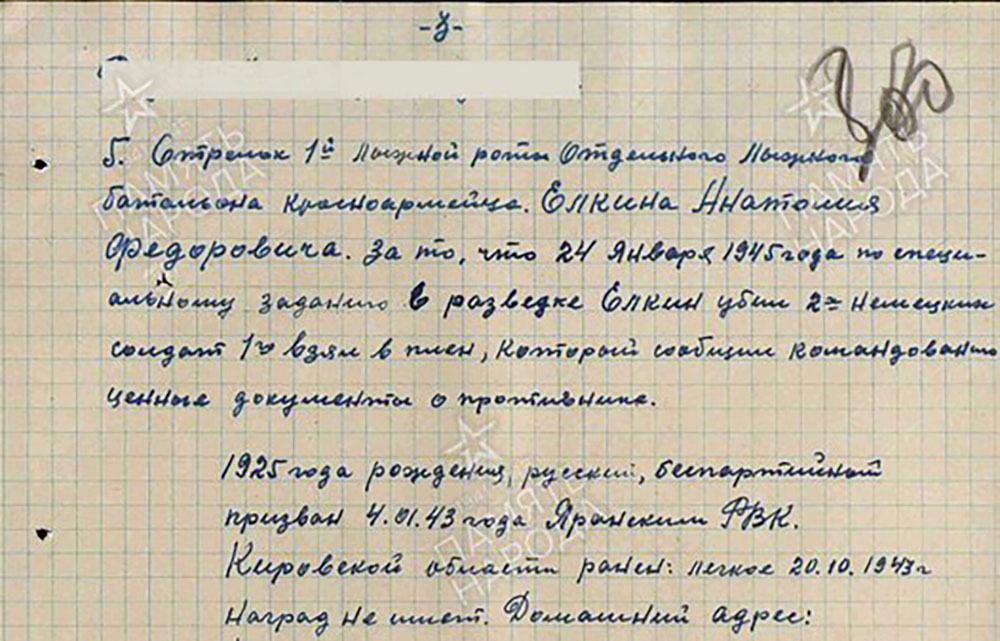 5. Стрелок 1й лыжной роты Отдельного Лыжного
батальона красноармейца. Елкина Анатолия
Федоровича. За то, что 24 Января 1945 года по специ-
альному заданию в разведке Елкин убил 2х немецких
солдат 1го взял в плен, который сообщил командованию
ценные документы о противнике.
1925 года рождения, русский, беспартийный
призван 4.01.43 года Яранским РВК.
Кировской области ранен: легкое 20.10.1943 г
наград не имеет. Домашний адрес:
ПАМЯТЬ
НАРОДА
ПАМЯТЬ
НАРОДА
ПАМЯТЬ
НАРОДА